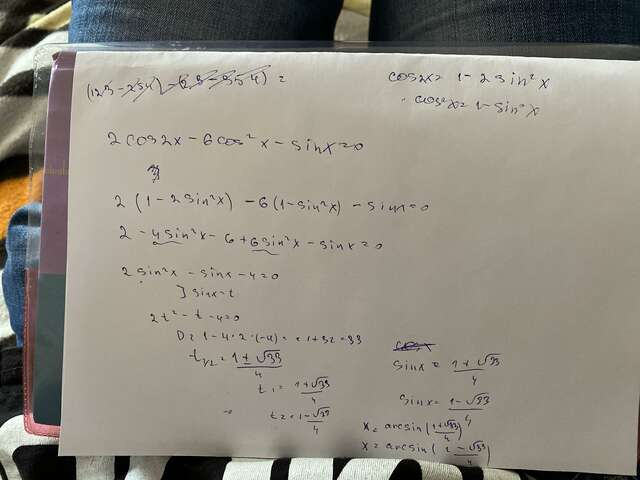 cos2x = 1 - 2sin²x
cos²x = 1 - sin²x
2cos2x - 6cos²x - sinx = 0
2(1 - 2sin²x) - 6(1 - sin²x) - sinx = 0
2 - 4sin²x - 6 + 6sin²x - sinx = 0
2sin²x - sinx - 4 = 0
] sinx = t
2t² - t - 4 = 0
D = 1 - 4·2·(-4) = 1 + 32 = 33
t₁/₂ = (1 ± √33)/4
t₁ = (1 + √33)/4
t₂ = (1 - √33)/4
sinx = (1 + √33)/4
sinx = (1 - √33)/4
x = arcsin((1 + √33)/4)
x = arcsin((1 - √33)/4)